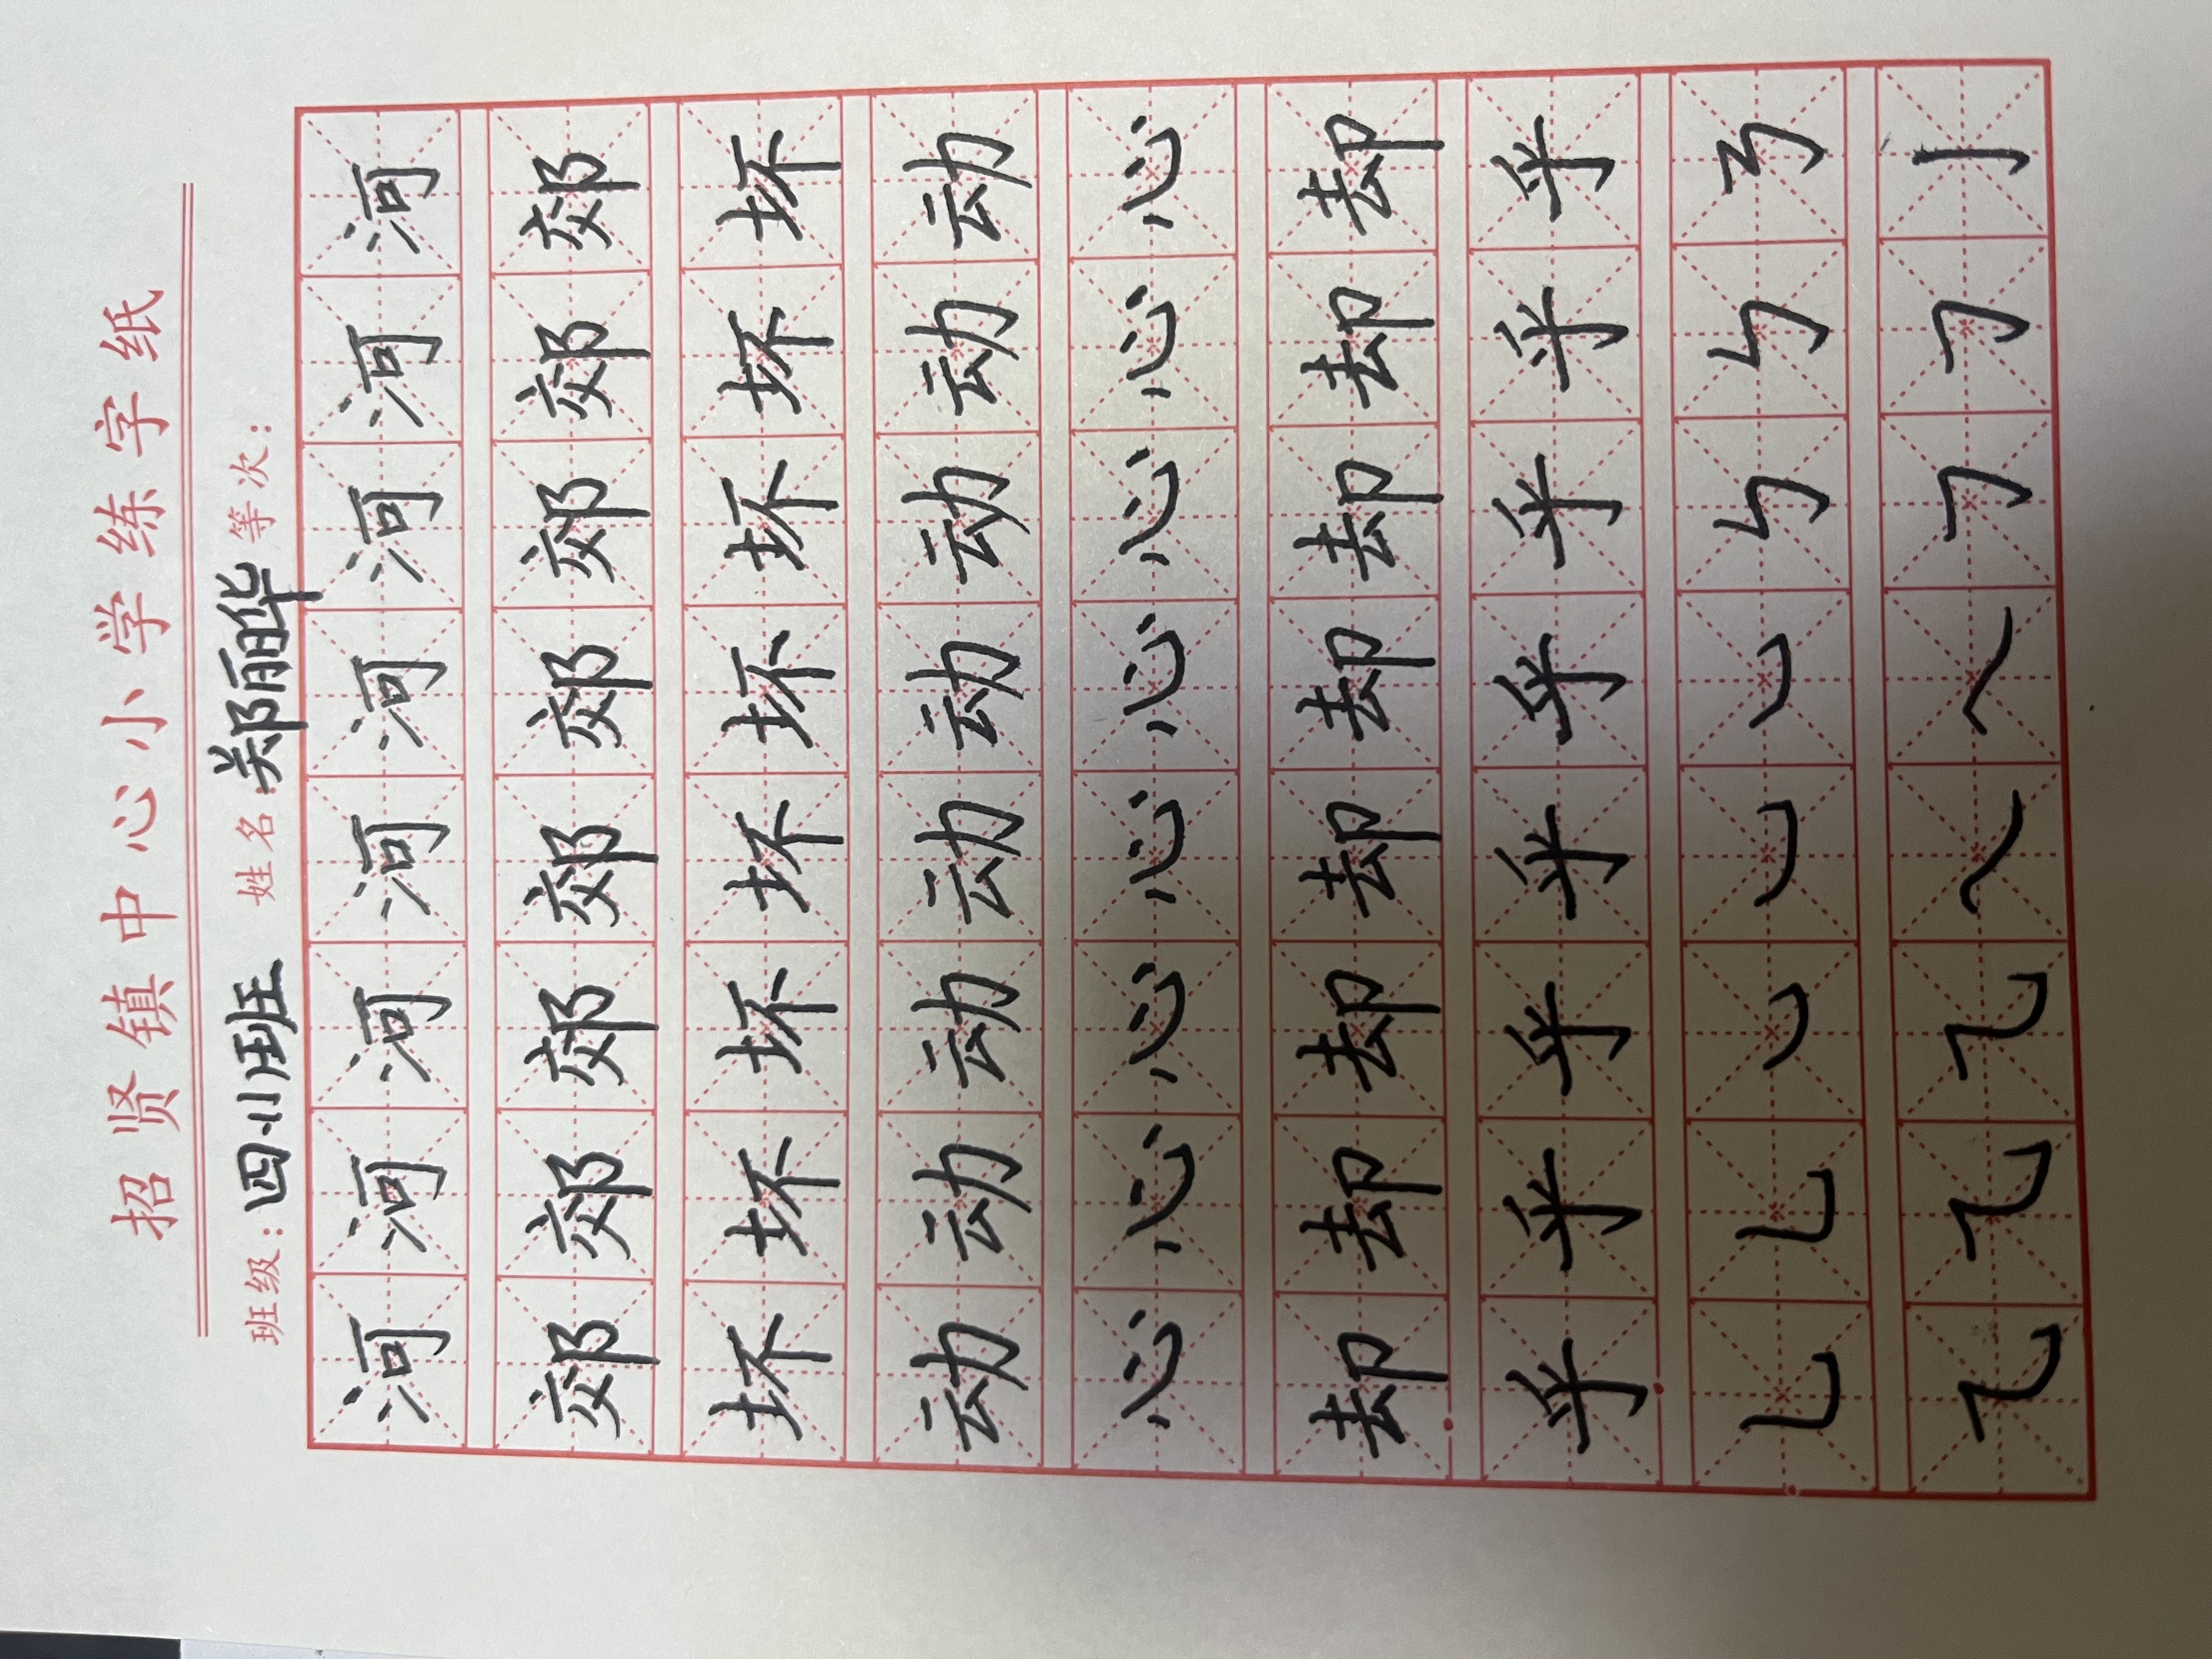 招贤镇中心小学练字纸
班级：四(1)班 姓名：郑丽华 等次：
河河河河河河河河
郊郊郊郊郊郊郊郊
坏坏坏坏坏坏坏坏
动动动动动动动动
心心心心心心心心
却却却却却却却却
乎乎乎乎乎乎乎乎
㇟㇟㇃㇃㇃㇉㇉㇡
㇈㇈㇈㇂㇂㇆㇆亅